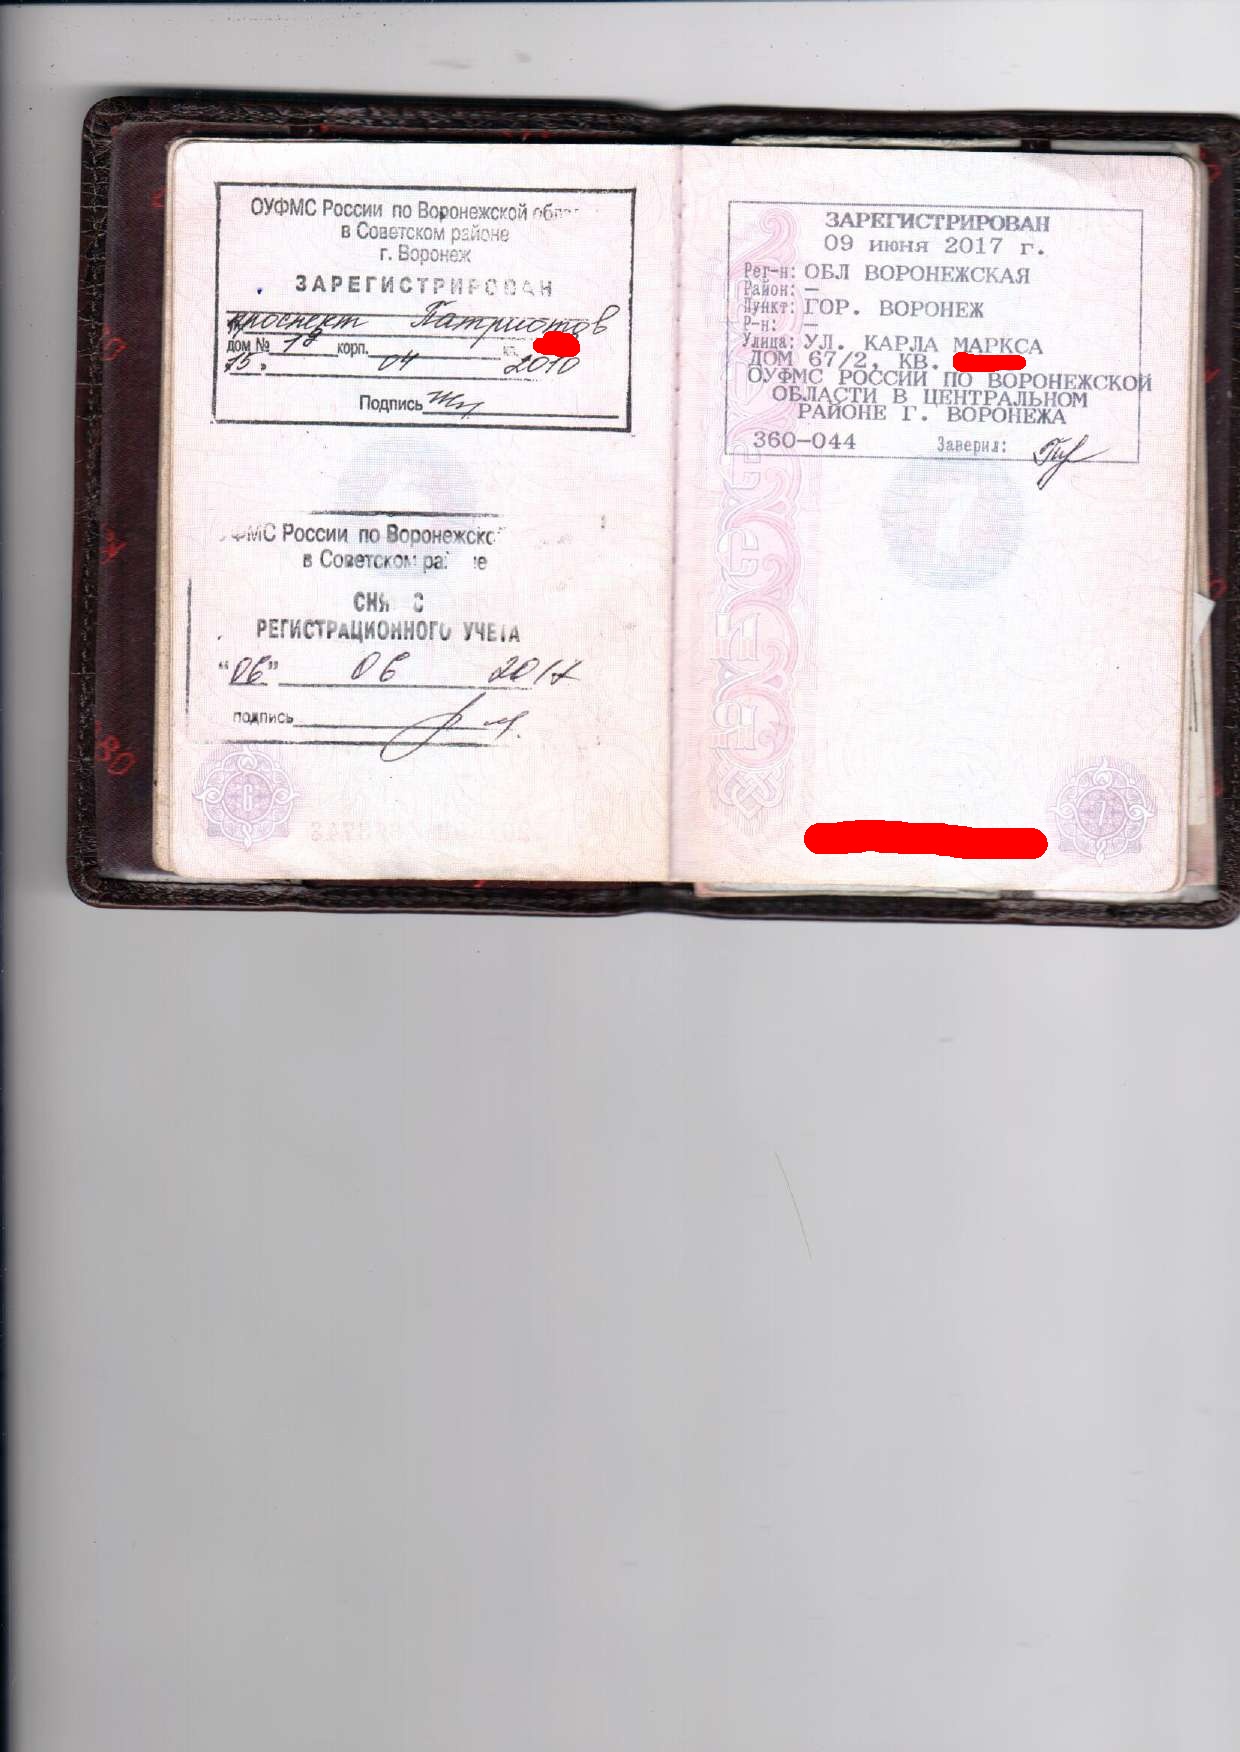 ОУФМС России по Воронежской
в Советском районе
г. Воронеж
ЗАРЕГИСТРИРОВАН
проспект Патриотов
дом № корп.
15 04 2010
Подпись
ОУФМС России по Воронежской
в Советском районе
СНЯТ С
РЕГИСТРАЦИОННОГО УЧЕТА
"06" 06 2017
подпись
6
ЗАРЕГИСТРИРОВАН
09 июня 2017 г.
Рег-н: ОБЛ ВОРОНЕЖСКАЯ
Район: —
Пункт: ГОР. ВОРОНЕЖ
Р-н: —
Улица: УЛ. КАРЛА МАРКСА
ДОМ 67/2, КВ.
ОУФМС РОССИИ ПО ВОРОНЕЖСКОЙ
ОБЛАСТИ В ЦЕНТРАЛЬНОМ
РАЙОНЕ Г. ВОРОНЕЖА
360-044 Заверил:
7